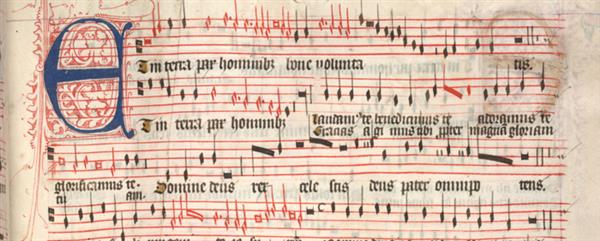 Et in terra pax hominibz bone volunta tis.
Et in terra pax hominibz laudamus te benedicimus te adoramus te
Gracias agi mus tibi propter magna gloriam
glorificamus te. Domine deus rex cele stis deus pater omnipo tens.
tu am.